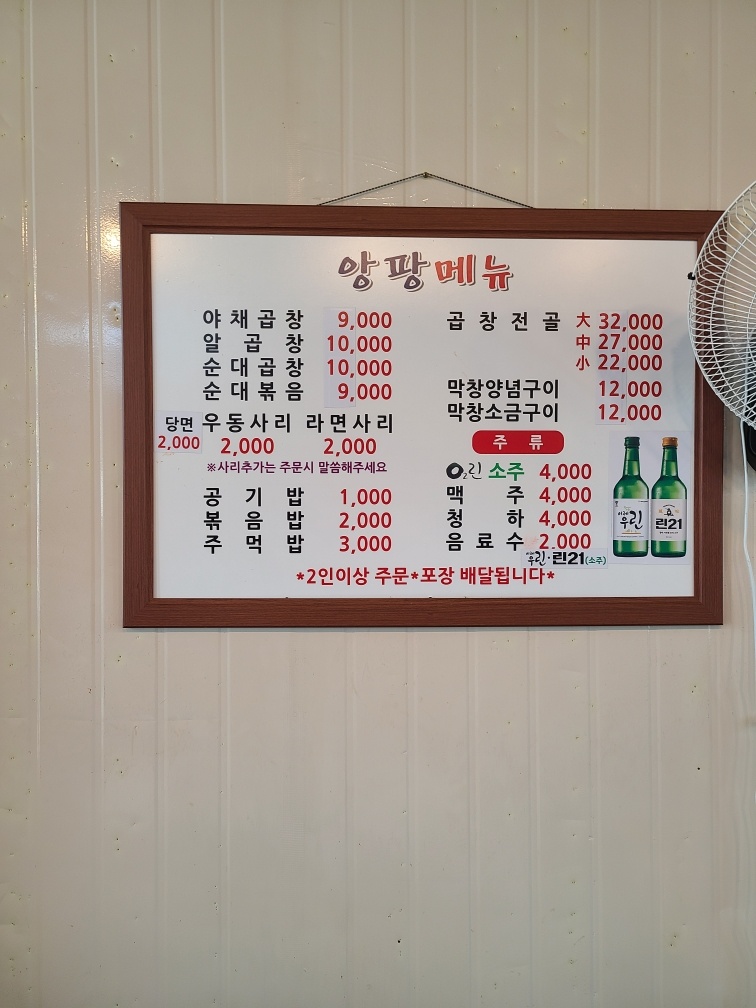 앙팡메뉴
야채곱창 9,000
알곱창 10,000
순대곱창 10,000
순대볶음 9,000
당면 2,000
우동사리 2,000
라면사리 2,000
※사리추가는 주문시 말씀해주세요
공기밥 1,000
볶음밥 2,000
주먹밥 3,000
곱창전골 大 32,000
中 27,000
小 22,000
막창양념구이 12,000
막창소금구이 12,000
주류
O2린 소주 4,000
맥주 4,000
청하 4,000
음료수 2,000
우린·린21(소주)
우린
린21
*2인이상 주문*포장 배달됩니다*